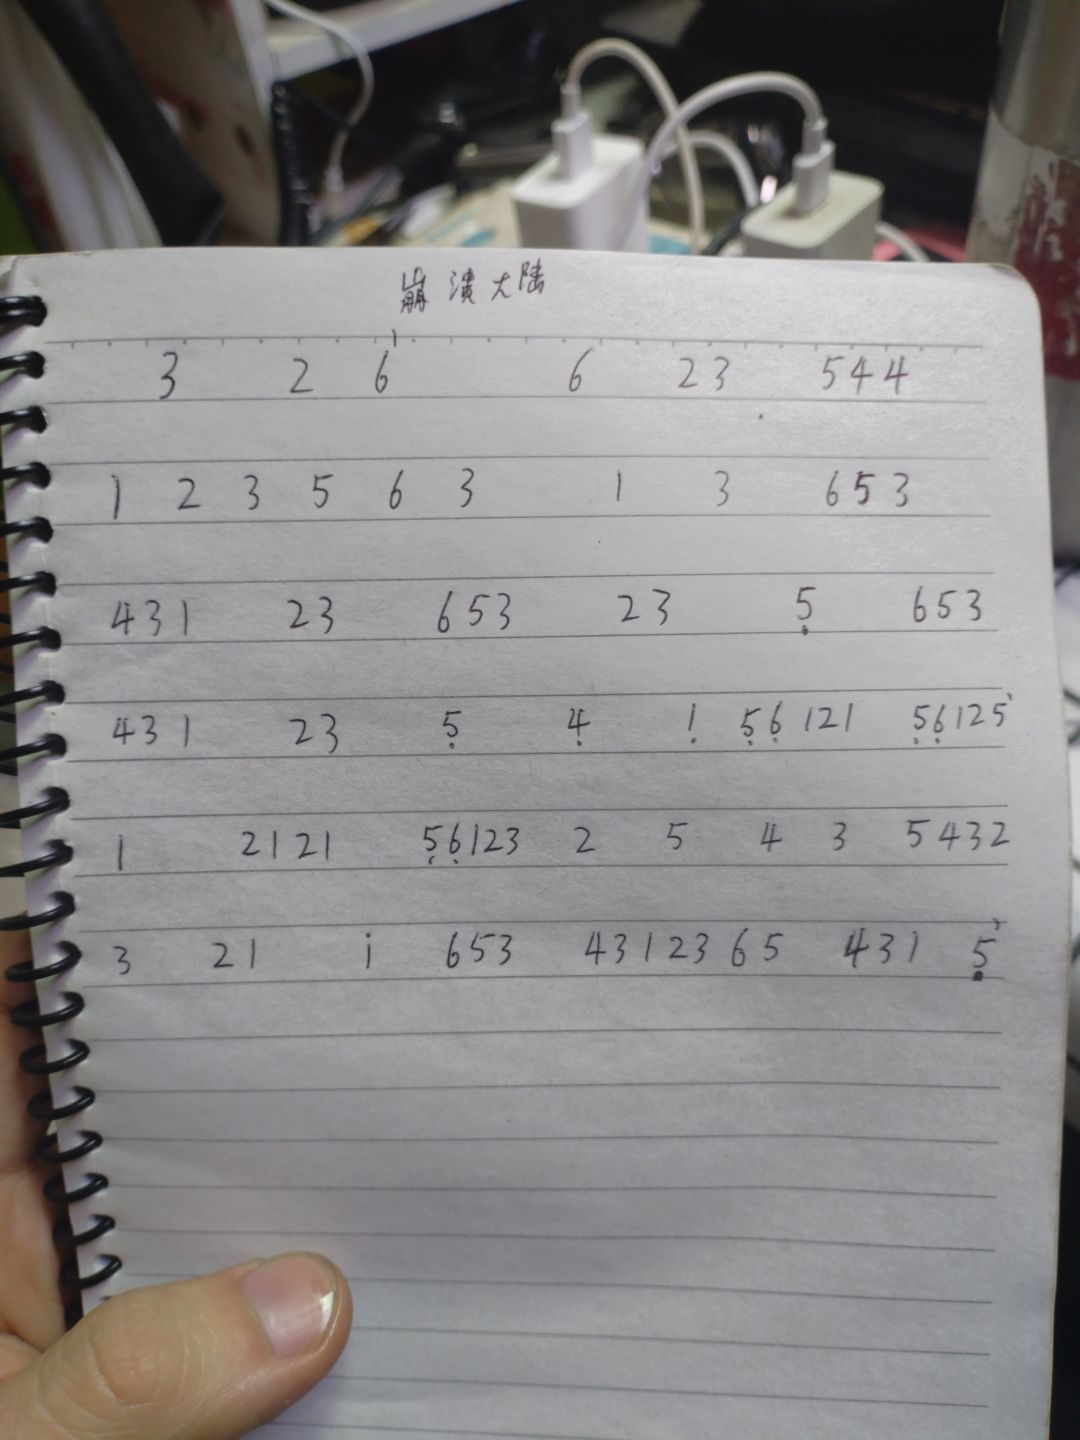 崩溃大陆
3 2 6 6 23 544
1 2 3 5 6 3 1 3 653
431 23 653 23 5̣ 653
431 23 5̣ 4̣ 1̣ 5̣6̣121 5̣6̣125
1 2121 5̣6̣123 2 5 4 3 5432
3 21 i 653 43123 65 431 5̣